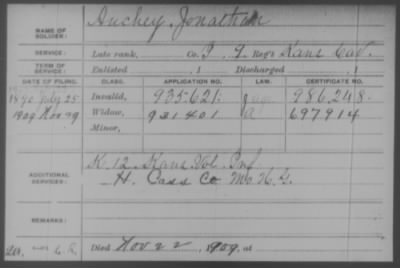 NAME OF SOLDIER: Duchey, Jonathan
SERVICE: Late rank, Co. I, 9 Reg't Kans Cav.
TERM OF SERVICE: Enlisted , 1 Discharged , 1
DATE OF FILING. CLASS. APPLICATION NO. LAW. CERTIFICATE NO.
1890 July 25 Invalid, 935.621 986.248
1909 Nov 29 Widow, 931401 697914
Minor,
ADDITIONAL SERVICES: K. 12. Kans. Vol. Inf
H. Cass Co Mo H. G.
REMARKS:
C. R. Died Nov 22, 1909, at